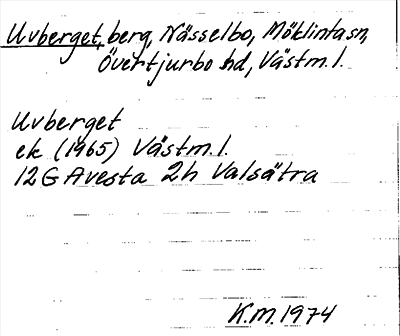 Uvberget, berg, Nässelbo, Möklintasn,
Övertjurbo hd, Västm.l.
Uvberget
ek (1965) Västm.l.
12G Avesta 2h Valsätra
K.M. 1974